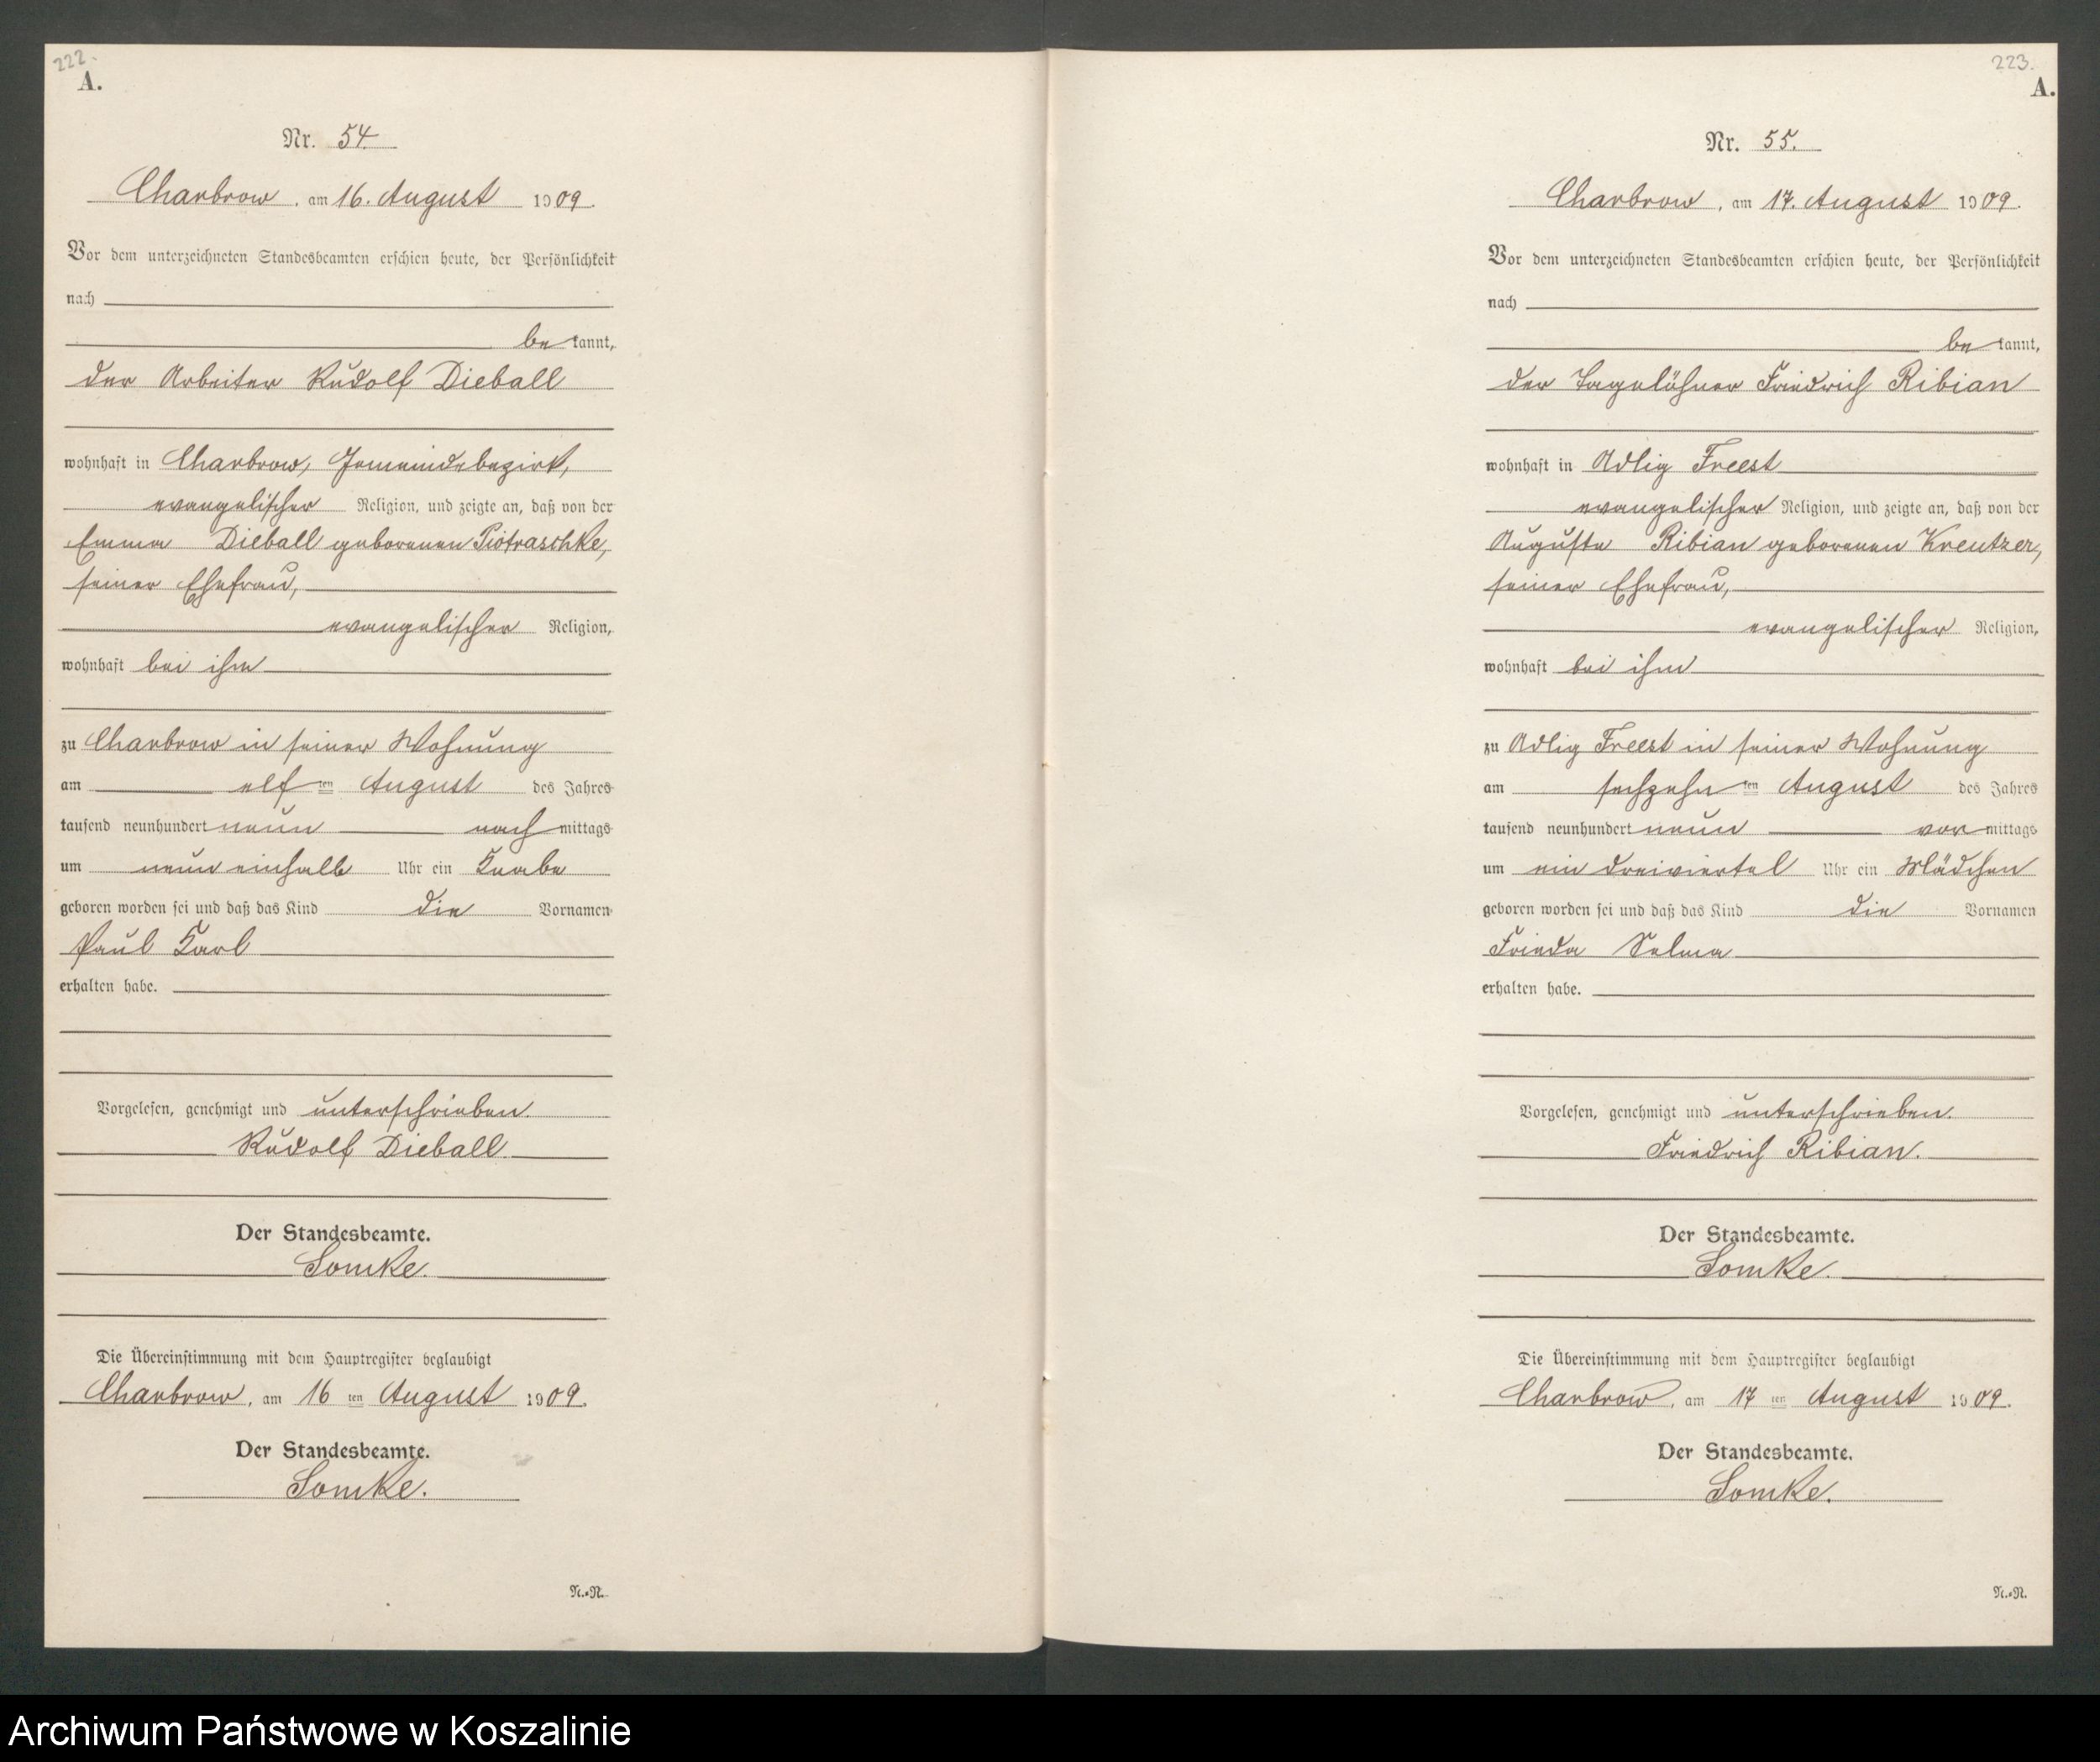 222.
A.
Nr. 54.
Charbrow, am 16. August 1909.
Vor dem unterzeichneten Standesbeamten erschien heute, der Persönlichkeit
nach
bekannt,
der Arbeiter Rudolf Dieball
wohnhaft in Charbrow, Gemeindebezirk,
evangelischer Religion, und zeigte an, daß von der
Emma Dieball geborenen Piotraschke,
seiner Ehefrau,
evangelischer Religion,
wohnhaft bei ihm
zu Charbrow in seiner Wohnung
am elften August des Jahres
tausend neunhundert neun nachmittags
um neun einhalb Uhr ein Knabe
geboren worden sei und daß das Kind die Vornamen
Paul Karl
erhalten habe.
Vorgelesen, genehmigt und unterschrieben.
Rudolf Dieball.
Der Standesbeamte.
Lomke.
Die Übereinstimmung mit dem Hauptregister beglaubigt
Charbrow, am 16ten August 1909.
Der Standesbeamte.
Lomke.
N.=N.
223.
A.
Nr. 55.
Charbrow, am 17. August 1909.
Vor dem unterzeichneten Standesbeamten erschien heute, der Persönlichkeit
nach
bekannt,
der Tagelöhner Friedrich Ribian
wohnhaft in Adlig Freest
evangelischer Religion, und zeigte an, daß von der
Auguste Ribian geborenen Kreutzer,
seiner Ehefrau,
evangelischer Religion,
wohnhaft bei ihm
zu Adlig Freest in seiner Wohnung
am sechzehnten August des Jahres
tausend neunhundert neun vormittags
um ein dreiviertel Uhr ein Mädchen
geboren worden sei und daß das Kind die Vornamen
Frieda Selma
erhalten habe.
Vorgelesen, genehmigt und unterschrieben.
Friedrich Ribian.
Der Standesbeamte.
Lomke.
Die Übereinstimmung mit dem Hauptregister beglaubigt
Charbrow, am 17ten August 1909.
Der Standesbeamte.
Lomke.
N.=N.
Archiwum Państwowe w Koszalinie